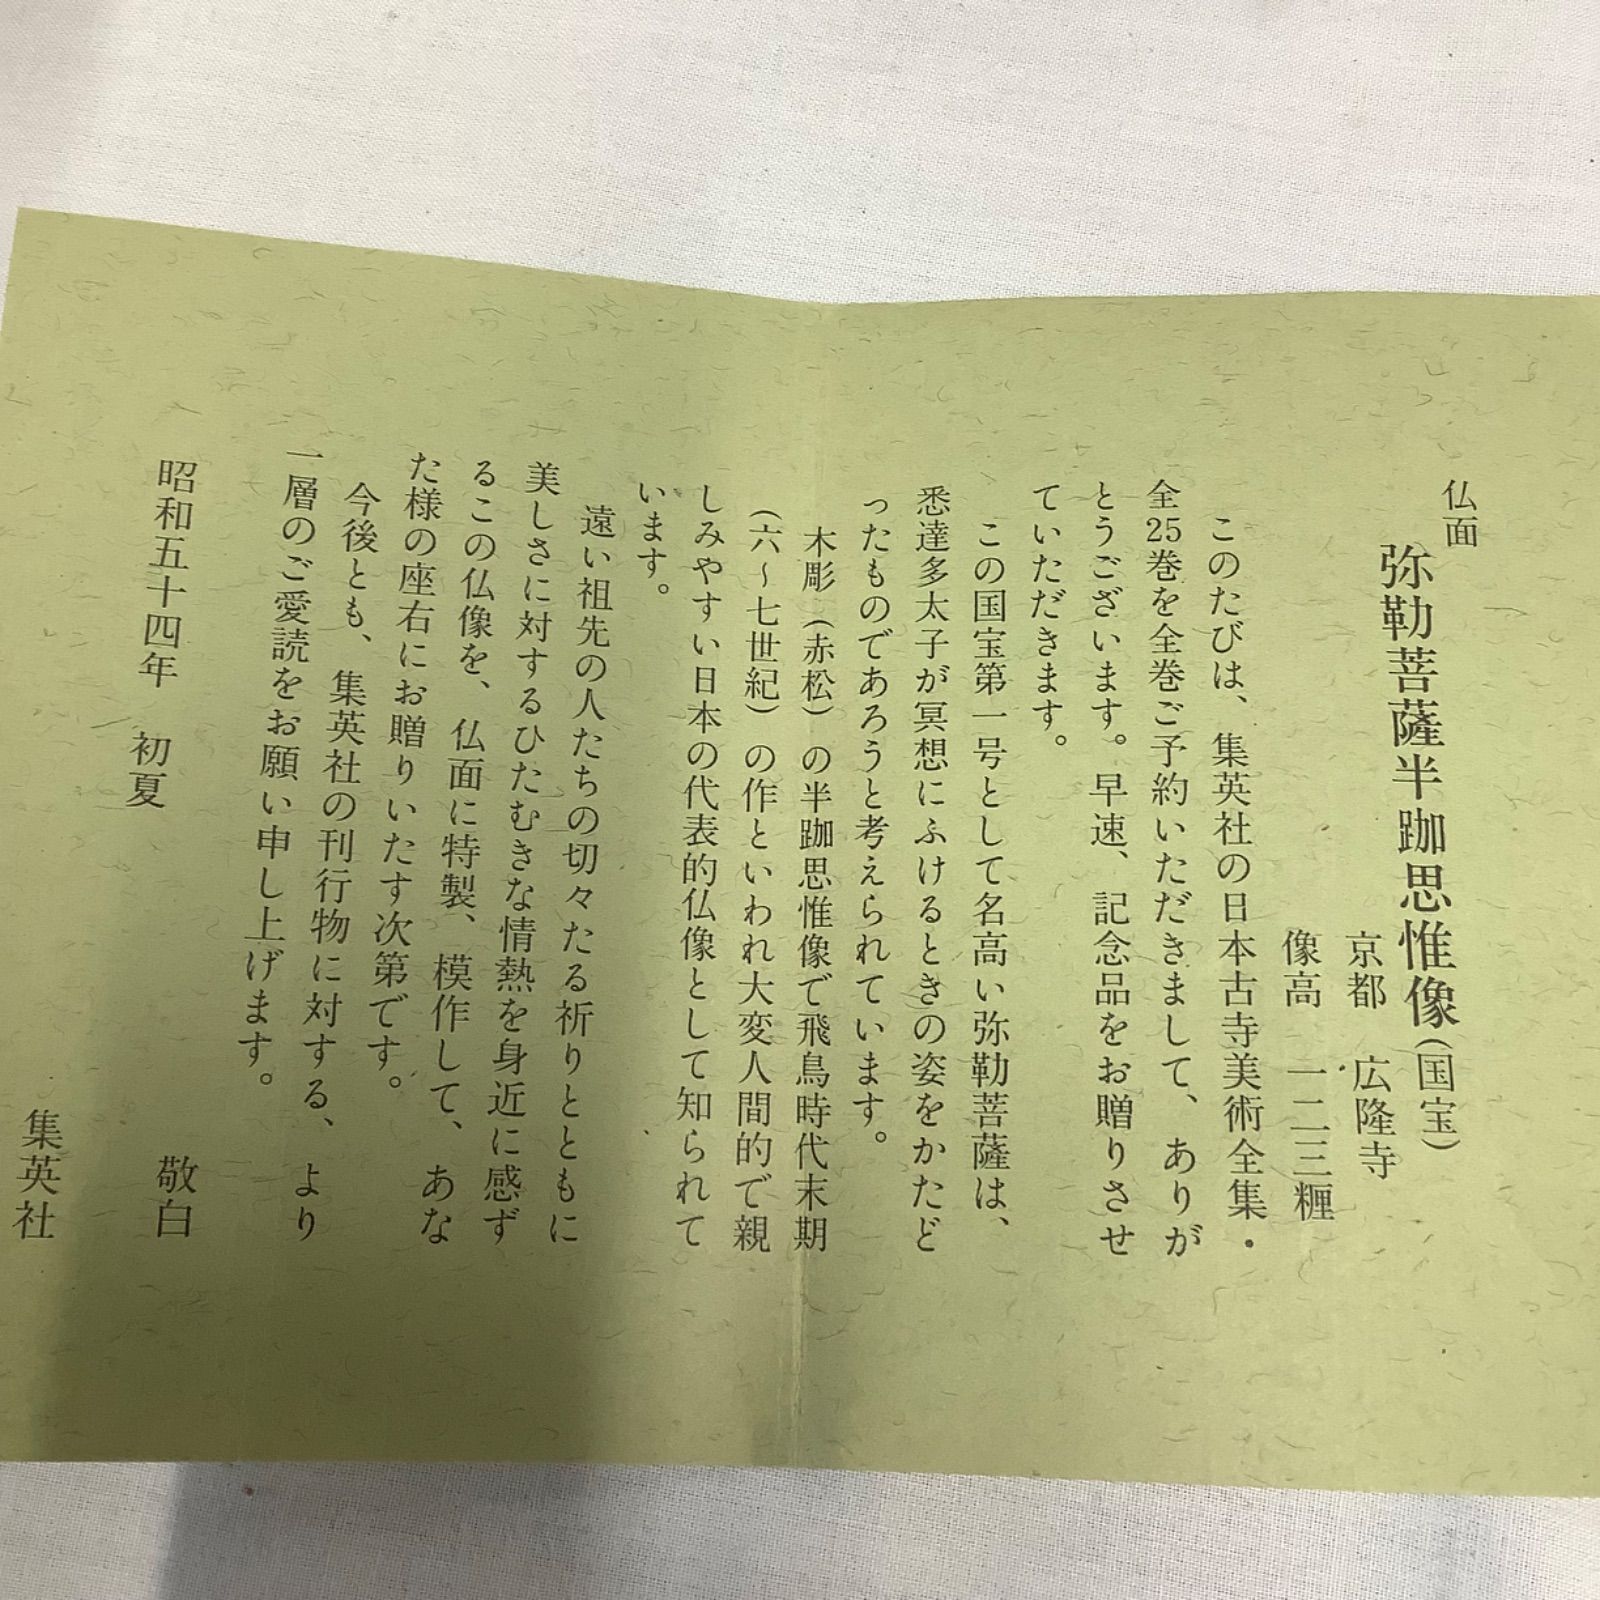 仏面
弥勒菩薩半跏思惟像(国宝)
京都 広隆寺
像高 一二三糎
このたびは、集英社の日本古寺美術全集・
全25巻を全巻ご予約いただきまして、ありが
とうございます。早速、記念品をお贈りさせ
ていただきます。
この国宝第一号として名高い弥勒菩薩は、
悉達多太子が冥想にふけるときの姿をかたど
ったものであろうと考えられています。
木彫(赤松)の半跏思惟像で飛鳥時代末期
(六〜七世紀)の作といわれ大変人間的で親
しみやすい日本の代表的仏像として知られて
います。
遠い祖先の人たちの切々たる祈りとともに
美しさに対するひたむきな情熱を身近に感ず
るこの仏像を、仏面に特製、模作して、あな
た様の座右にお贈りいたす次第です。
今後とも、集英社の刊行物に対する、より
一層のご愛読をお願い申し上げます。
敬白
昭和五十四年 初夏
集英社